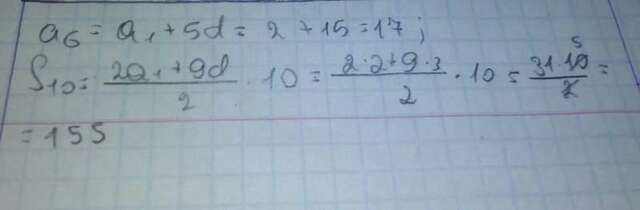 a₆ = a₁ + 5d = 2 + 15 = 17;
S₁₀ = (2a₁ + 9d)/2 · 10 = (2·2 + 9·3)/2 · 10 = (31·10)/2 5 =
= 155